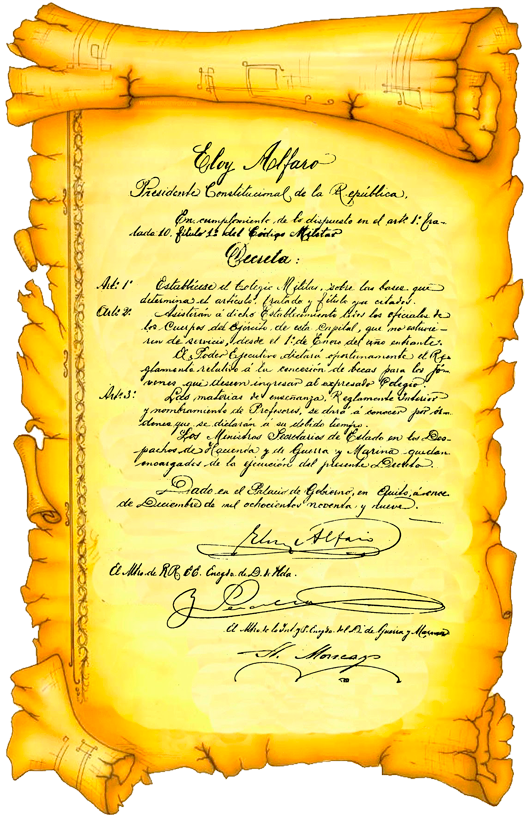 Eloy Alfaro
Presidente Constitucional de la República,
En cumplimiento de lo dispuesto en el artº 1º tra-
tado 10, título 12 del Código Militar
Decreta:
Artº 1º Establécese el Colegio Militar, sobre las bases que
determina el artículo, tratado y título ya citados.
Artº 2º Asistirán á dicho Establecimiento todos los oficiales de
los Cuerpos del Ejército de esta Capital, que no estuvie-
ren de servicio, desde el 1º de Enero del año entrante.
El Poder Ejecutivo dictará oportunamente el Re-
glamento relativo á la concesión de becas para los jó-
venes que deseen ingresar al expresado Colegio.
Artº 3º Las materias de enseñanza, Reglamento Interior
y nombramiento de Profesores, se dará á conocer por ór-
denes que se dictarán a su debido tiempo.
Los Ministros Secretarios de Estado en los Des-
pachos de Hacienda y de Guerra y Marina quedan
encargados de la ejecución del presente Decreto.
Dado en el Palacio de Gobierno, en Quito, á once
de Diciembre de mil ochocientos noventa y nueve.
Eloy Alfaro
El Mtro. de RR. EE. Encgdo. de D. de Hda.
J. Peralta
El Mtro. de lo Int. y P. Encgdo. del D. de Guerra y Marina